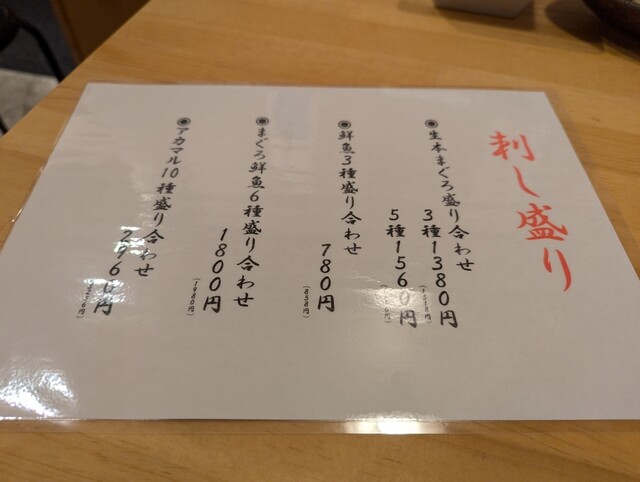 刺し盛り
◉生本まぐろ盛り合わせ
3種1380円
(1518円)
5種1560円
◉鮮魚3種盛り合わせ
780円
(858円)
◉まぐろ鮮魚6種盛り合わせ
1800円
(1980円)
◉アカマル10種盛り合わせ
2960円